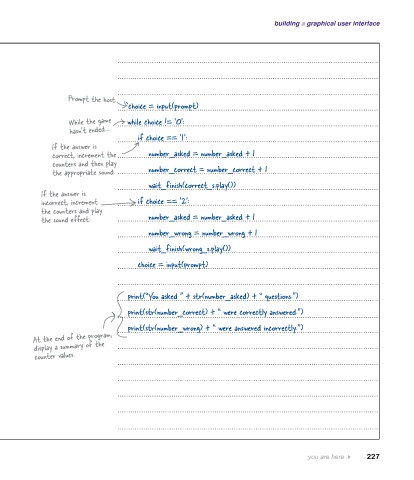 building a graphical user interface
Prompt the host.
choice = input(prompt)
While the game
hasn't ended...
while choice != '0':
if choice == '1':
If the answer is
correct, increment the
counters and then play
the appropriate sound.
number_asked = number_asked + 1
number_correct = number_correct + 1
wait_finish(correct_s.play())
If the answer is
incorrect, increment
the counters and play
the sound effect.
if choice == '2':
number_asked = number_asked + 1
number_wrong = number_wrong + 1
wait_finish(wrong_s.play())
choice = input(prompt)
print("You asked " + str(number_asked) + " questions.")
print(str(number_correct) + " were correctly answered.")
print(str(number_wrong) + " were answered incorrectly.")
At the end of the program,
display a summary of the
counter values.
you are here
227